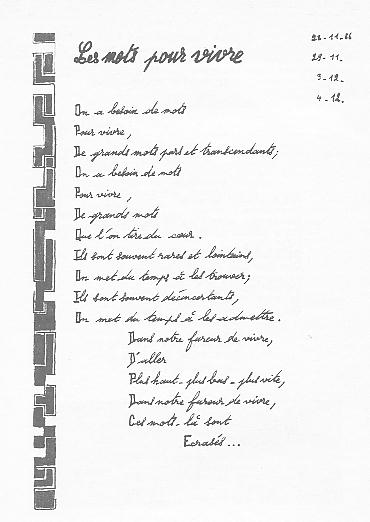 Les mots pour vivre
28-11-86
29-11.
3-12.
4-12.
On a besoin de mots
Pour vivre,
De grands mots purs et transcendants;
On a besoin de mots
Pour vivre,
De grands mots
Que l'on tire du cœur.
Ils sont souvent rares et lointains,
On met du temps à les trouver;
Ils sont souvent déconcertants,
On met du temps à les admettre.
Dans notre fureur de vivre,
D'aller
Plus haut - plus bas - plus vite,
Dans notre fureur de vivre,
Ces mots-là sont
Ecrasés...